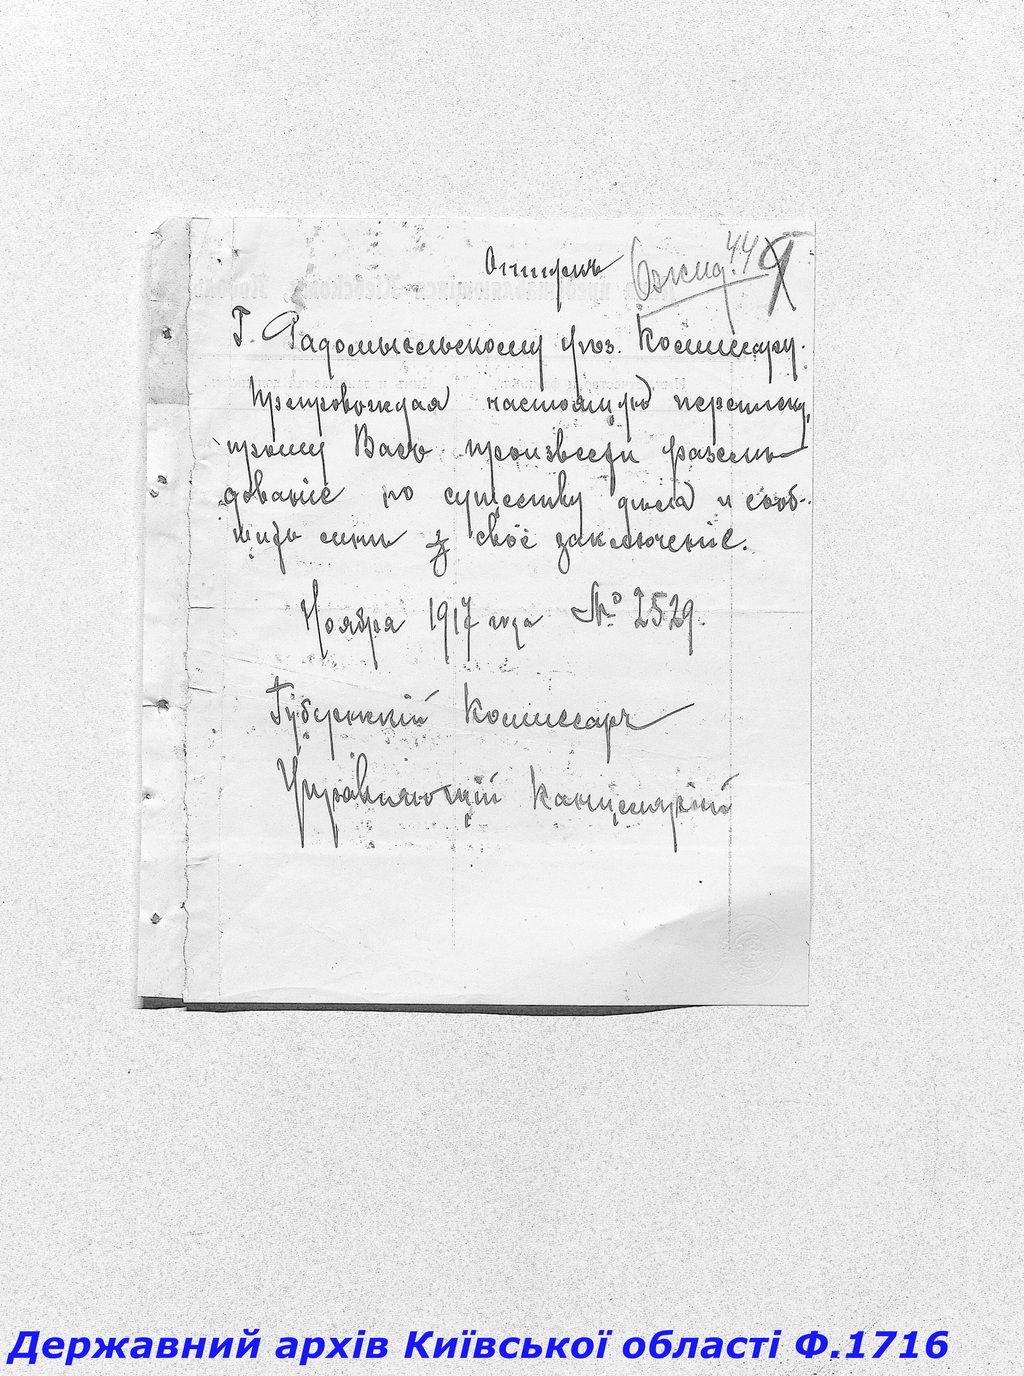 Отпускъ Ожид. 44
Г. Радомысльскому уѣз. Комиссару.
Препровождая настоящую переписку,
прошу Васъ произвести разслѣ-
дованіе по существу дѣла и сооб-
щить мнѣ свое заключеніе.
Ноября 1917 года № 2529.
Губернскій Комиссаръ
Управляющій Канцеляріей
Державний архів Київської області Ф.1716